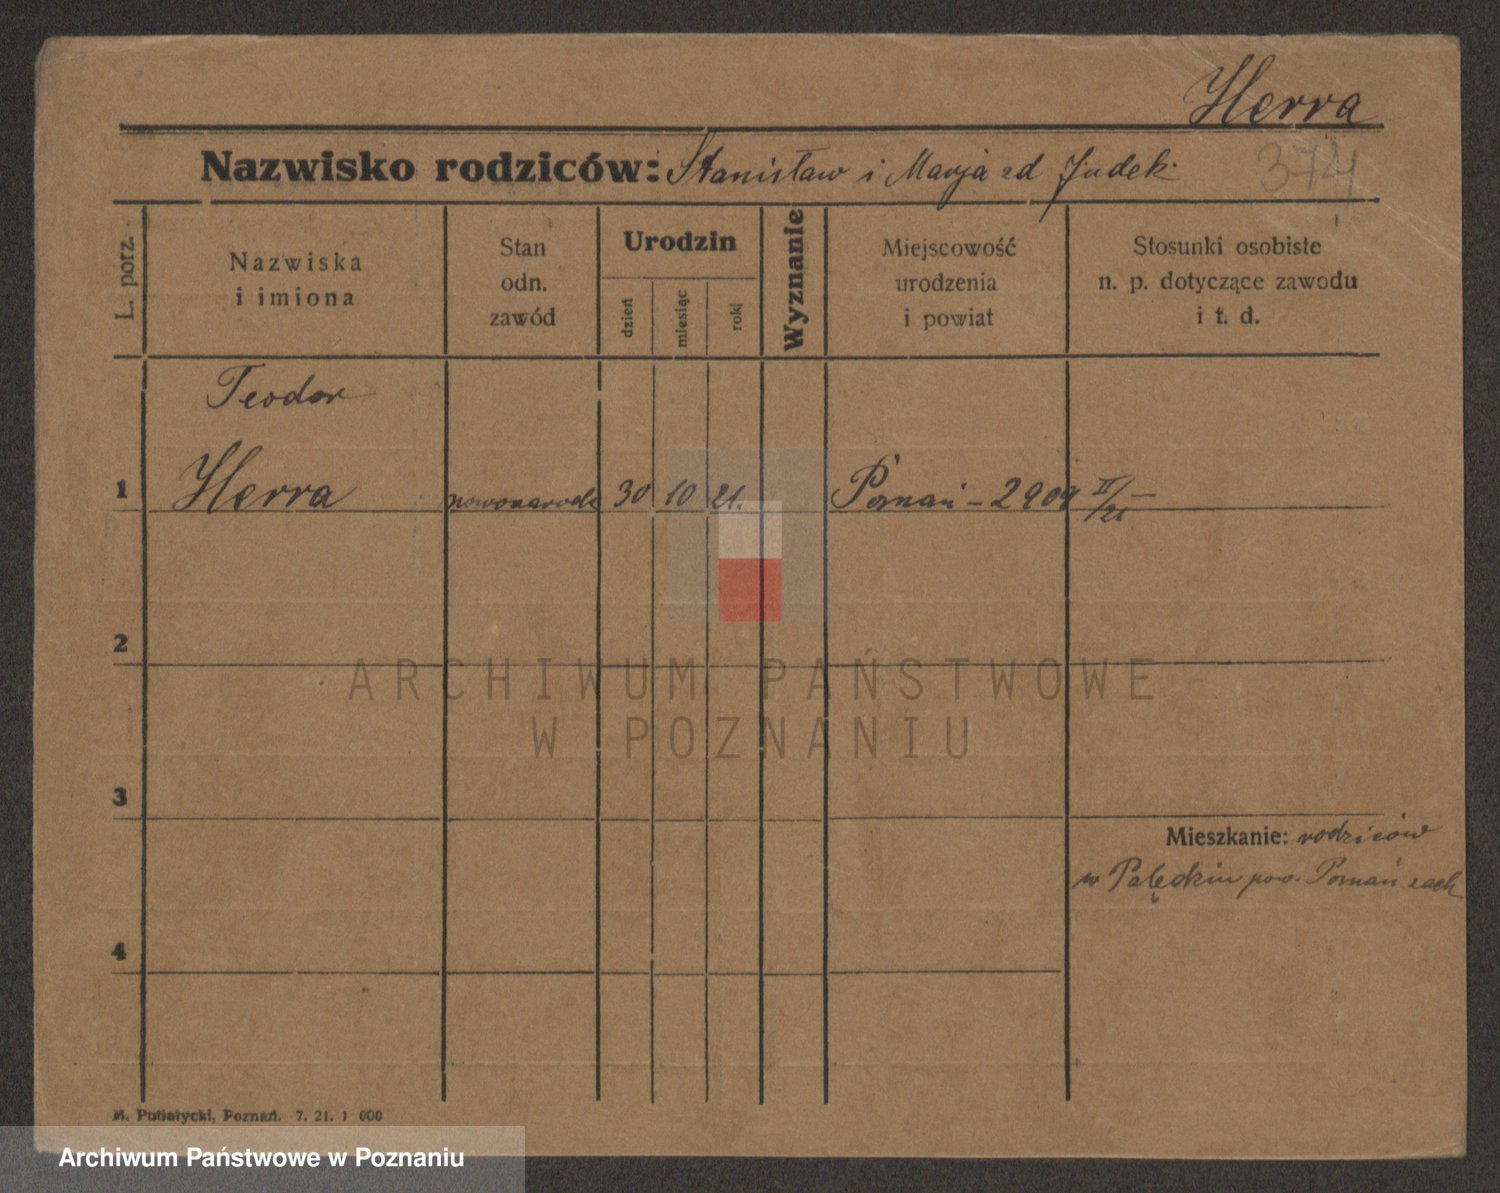 Herra
Nazwisko rodziców: Stanisław i Marja zd Judek
374
L. porz.
Nazwiska
i imiona
Stan
odn.
zawód
Urodzin
dzień
miesiąc
rok
Wyznanie
Miejscowość
urodzenia
i powiat
Stosunki osobiste
n. p. dotyczące zawodu
i t. d.
Teodor
1 Herra noworodek 30 10 21. Poznań - 2904 II/21
2
ARCHIWUM PAŃSTWOWE
W POZNANIU
3
Mieszkanie: rodziców
w Palędziu pow. Poznań zach
4
M. Putiatycki, Poznań. 7. 21. 1 000
Archiwum Państwowe w Poznaniu